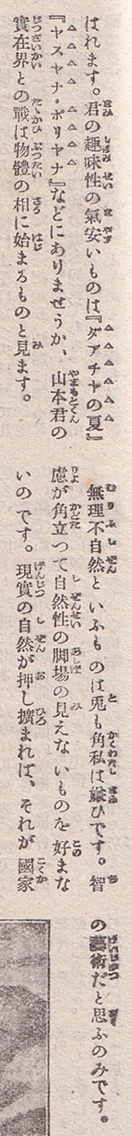 はれます。君の趣味性の氣安いものは『ダアチヤの夏』
『ヤスヤナ・ポリヤナ』などにありませうか、山本君の
實在界との戰は物體の相に始まるものと見ます。
無理不自然といふものは兎も角私は嫌ひです。智
慮が角立つて自然性の脚場の見えないものを好まな
いのです。現實の自然が押し壞まれば、それが國家
の藝術だと思ふのみです。